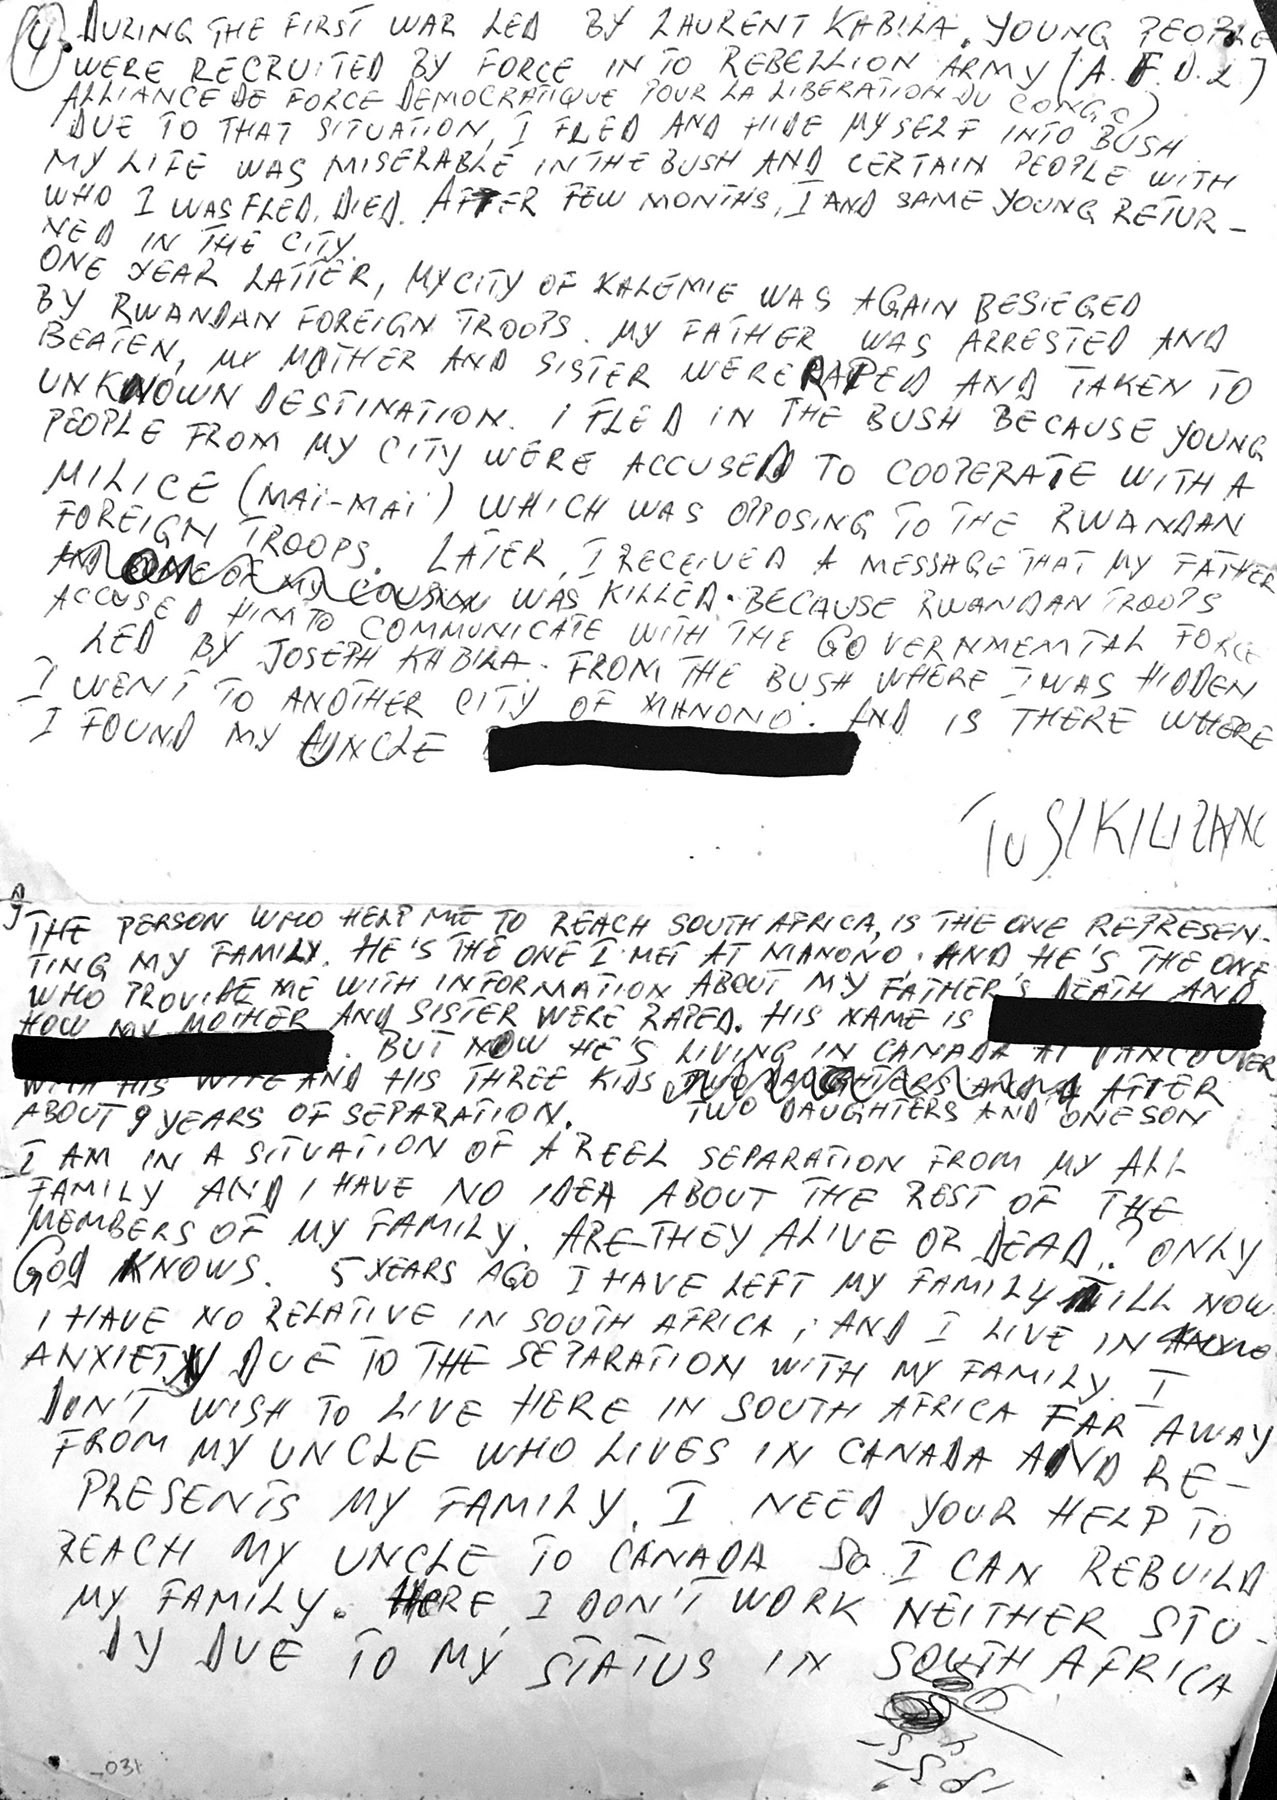 4. DURING THE FIRST WAR LED BY LAURENT KABILA. YOUNG PEOPLE
WERE RECRUITED BY FORCE INTO REBELLION ARMY (A.F.D.L)
ALLIANCE DE FORCE DEMOCRATIQUE POUR LA LIBERATION DU CONGO)
DUE TO THAT SITUATION, I FLED AND HIDE MYSELF INTO BUSH
MY LIFE WAS MISERABLE IN THE BUSH AND CERTAIN PEOPLE WITH
WHO I WAS FLED, DIED. AFTER FEW MONTHS, I AND SAME YOUNG RETUR-
NED IN THE CITY.
ONE YEAR LATTER, MY CITY OF KALEMIE WAS AGAIN BESIEGED
BY RWANDAN FOREIGN TROOPS. MY FATHER WAS ARRESTED AND
BEATEN, MY MOTHER AND SISTER WERE RAPED AND TAKEN TO
UNKNOWN DESTINATION. I FLED IN THE BUSH BECAUSE YOUNG
PEOPLE FROM MY CITY WERE ACCUSED TO COOPERATE WITH A
MILICE (MAÏ-MAÏ) WHICH WAS OPPOSING TO THE RWANDAN
FOREIGN TROOPS. LATER, I RECEIVED A MESSAGE THAT MY FATHER
AND ONE OF MY COUSIN WAS KILLED. BECAUSE RWANDAN TROOPS
ACCUSED HIM TO COMMUNICATE WITH THE GOVERNMEMTAL FORCE
LED BY JOSEPH KABILA. FROM THE BUSH WHERE I WAS HIDDEN
I WENT TO ANOTHER CITY OF MANONO. AND IS THERE WHERE
I FOUND MY UNCLE
TUSIKILIZANE
THE PERSON WHO HELP ME TO REACH SOUTH AFRICA, IS THE ONE REPRESEN-
TING MY FAMILY. HE'S THE ONE I MET AT MANONO. AND HE'S THE ONE
WHO PROVIDE ME WITH INFORMATION ABOUT MY FATHER'S DEATH AND
HOW MY MOTHER AND SISTER WERE RAPED. HIS NAME IS
. BUT NOW HE'S LIVING IN CANADA AT VANCOUVER
WITH HIS WIFE AND HIS THREE KIDS TWO DAUGHTERS AND AFTER
ABOUT 9 YEARS OF SEPARATION. TWO DAUGHTERS AND ONE SON
I AM IN A SITUATION OF A REEL SEPARATION FROM MY ALL
FAMILY AND I HAVE NO IDEA ABOUT THE REST OF THE
MEMBERS OF MY FAMILY. ARE THEY ALIVE OR DEAD? ONLY
GOD KNOWS. 5 YEARS AGO I HAVE LEFT MY FAMILY TILL NOW
I HAVE NO RELATIVE IN SOUTH AFRICA; AND I LIVE IN
ANXIETY DUE TO THE SEPARATION WITH MY FAMILY. I
DON'T WISH TO LIVE HERE IN SOUTH AFRICA FAR AWAY
FROM MY UNCLE WHO LIVES IN CANADA AND RE-
PRESENTS MY FAMILY. I NEED YOUR HELP TO
REACH MY UNCLE TO CANADA SO I CAN REBUILD
MY FAMILY. HERE I DON'T WORK NEITHER STU-
DY DUE TO MY STATUS IN SOUTH AFRICA
031